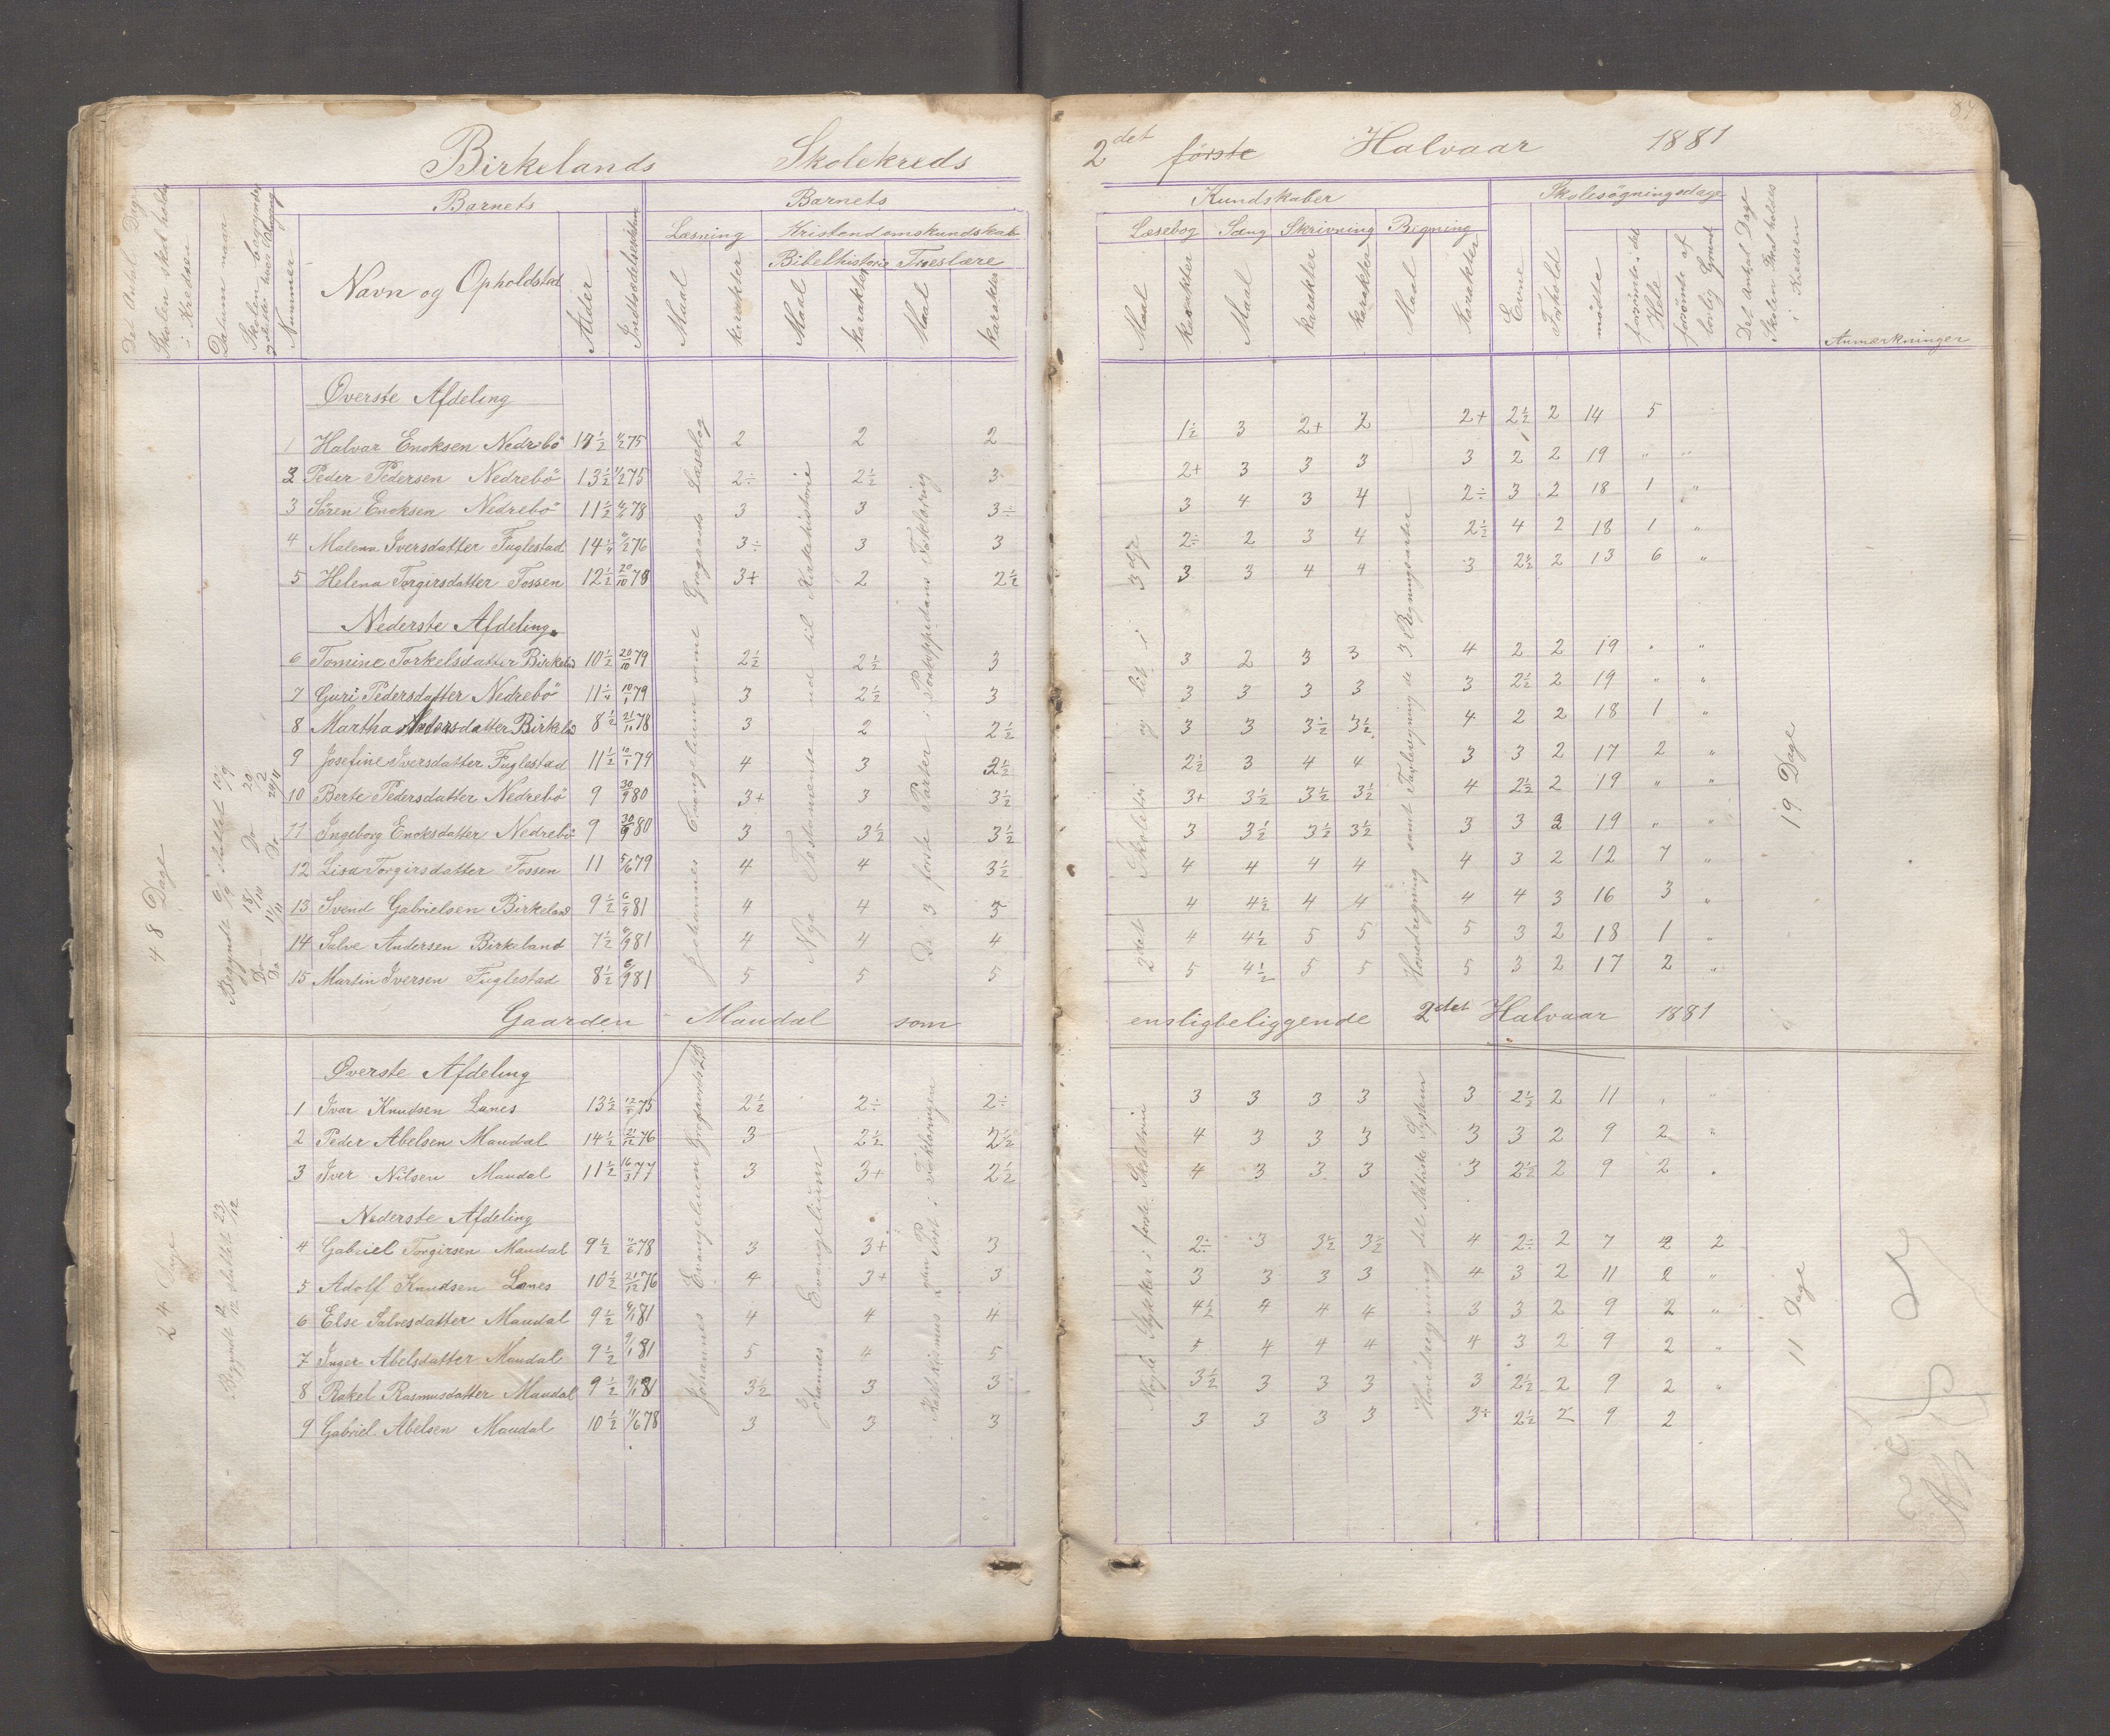 Birkelands Skolekreds
2det første Halvaar 1881
Det Antal Dage Skolen skal holdes i Kredsen
Datum naar Skolen begynder og slutter hver Omgang
Nummer
Barnets
Navn og Opholdsted
Alder
Indtrædelsesdatum
Barnets
Læsning
Kristendomskundskab
Bibelhistorie Troeslære
Maal Karakter Maal Karakter Maal Karakter
Kundskaber
Læsebog Sang Skrivning Regning
Maal Karakter Maal Karakter Karakter Maal Karakter
Evne
Forhold
Skolesøgningsdage
mødte
forsømte i det Hele
forsømte af lovlig Grund
Det Antal Dage Skolen skal holdes i Kredsen
Anmærkninger
Øverste Afdeling
1 Halvar Enoksen Nedrebö 2 2 2 1½ 3 2+ 2 2+ 2½ 2 14 5
2 Peder Pedersen Nedrebö 13½ 2÷ 2½ 3 2+ 3 3 3 3 2 2 19 " "
3 Sören Enoksen Nedrebö 11½ 3 3 3÷ 3 4 3 4 2÷ 3 2 18 1 "
4 Malena Iversdatter Fuglestad 14¼ 3÷ 3 3 2÷ 2 3 4 2½ 4 2 18 1 "
5 Helena Torgirsdatter Fossen 12½ 20/10 78 3+ 2 2½ 3 3 4 4 3 2½ 2 13 6 "
Nederste Afdeling
6 Tomine Torkelsdatter Birkeld 10½ 20/10 79 2½ 2½ 3 3 2 3 3 4 2 2 19 " "
7 Guri Pedersdatter Nedrebö 11¼ 10/1 79 3 2½ 3 3 3 3 3 3 2½ 2 19 " "
8 Martha Andersdatter Birkeld 8½ 3 2 2½ 3 3 3½ 3½ 4 2 2 18 1 "
9 Josefine Iversdatter Fuglestad 11½ 10/1 79 4 3 2½ 2½ 3 4 4 3 3 2 17 2 "
10 Berte Pedersdatter Nedrebö 9 30/9 80 3+ 3 3½ 3+ 3½ 3½ 3½ 4 2½ 2 19 " "
11 Ingeborg Enoksdatter Nedrebö 9 30/9 80 3 3½ 3½ 3 3½ 3½ 3½ 3 3 2 19 " "
12 Lisa Torgirsdatter Fossen 11 5/6 79 4 4 3½ 4 4 4 4 4 3 2 12 7 "
13 Svend Gabrielsen Birkeland 9½ 6/9 81 4 4 5 4 4½ 4 4 4 4 3 16 3 "
14 Salve Andersen Birkeland 7½ 6/9 81 4 4 4 4 4½ 5 5 5 3 2 18 1 "
15 Martin Iversen Fuglestad 8½ 6/9 81 5 5 5 5 4½ 5 5 5 3 2 17 2 "
48 Dage
Begyndt 6/9 sluttet
Do 18/10 Do
Do Do
Johannes Evangelium samt Læsebog
Nye Testamente ud til Kirkehistorie
De 3 første Parter i Pontoppidans Forklaring
2det Skoletri og lidt i 3die
Hovedregning samt Tavleregning de 3 Regningsarter
19 Dage
Gaarden Maudal som ensligbeliggende 2det Halvaar 1881
Øverste Afdeling
1 Ivar Knudsen Lanes 13½ 2½ 2÷ 2÷ 3 3 3 3 3 2½ 2 11
2 Peder Abelsen Maudal 14½ 3 2½ 2½ 4 3 3 3 3 3 2 9 2 "
3 Iver Nilsen Maudal 11½ 16/3 77 3 3+ 2½ 4 3 3 3 3 2½ 2 9 2
Nederste Afdeling
4 Gabriel Torgirsen Maudal 9½ 11/6 78 3 3+ 3 2÷ 3 3½ 3½ 4 2÷ 2 7 2 2
5 Adolf Knudsen Lanes 10½ 21/12 76 4 3+ 3 3 3 3 3 4 3 2 11 "
6 Else Salvesdatter Maudal 9½ 9/1 81 4 4 4 4½ 4 4 4 3 3 2 9 2 "
7 Inger Abelsdatter Maudal 9½ 9/1 81 5 4 5 5 4 4 4 4 3 2 9 2 "
8 Rakel Rasmusdatter Maudal 9½ 9/1 81 3½ 3 3 3½ 3 3 3 3 2½ 2 9 2 "
9 Gabriel Abelsen Maudal 10½ 11/6 78 3 3 3 3 3 3 3 3+ 2½ 2 9 2
24 Dage
Begyndt 12/12 sluttet 23/12
Johannes Evangelium
Johannes Evangelium
Katekismus 2den Part i Forklaringen
Nogle Stykker i første Skoletrin
Hovedregning
11 Dage